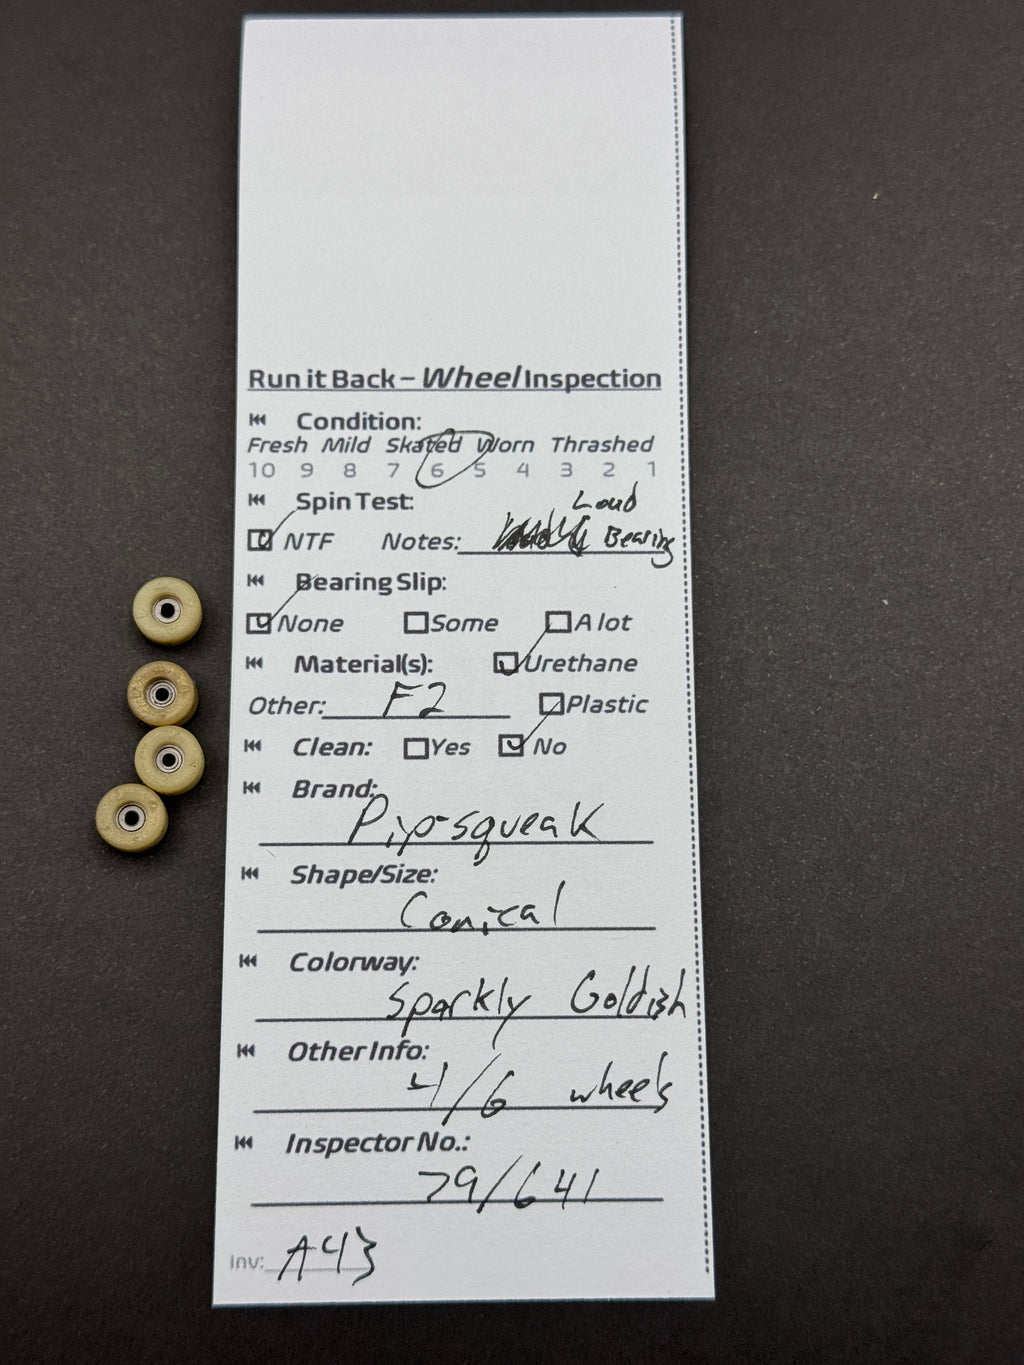 Run it Back – Wheel Inspection
Condition:
Fresh Mild Skated Worn Thrashed
10 9 8 7 6 5 4 3 2 1
Spin Test: Loud
NTF Notes: Bearing
Bearing Slip:
None Some A lot
Material(s): Urethane
Other: F2 Plastic
Clean: Yes No
Brand:
Pip-squeak
Shape/Size:
Conical
Colorway:
Sparkly Goldish
Other Info:
4/6 wheels
Inspector No.:
79/641
Inv: A43